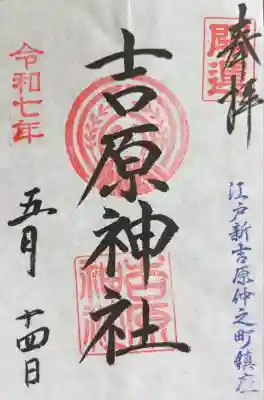 奉拝
開運
江戸新吉原仲之町鎮座
吉原神社
令和七年
五月
十四日